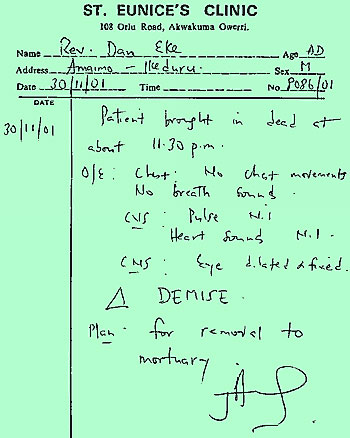 ST. EUNICE'S CLINIC
108 Orlu Road, Akwakuma Owerri.
Name Rev. Dan Eke Age AD
Address Amaimo - Ikeduru Sex M
Date 30/11/01 Time No P086/01
DATE
30/11/01 Patient brought in dead at
about 11.30 p.m.
O/E: Chest: No chest movements
No breath sound.
CVS: Pulse N.1
Heart sound N.1.
CNS: Eye dilated & fixed.
Δ DEMISE.
Plan. for removal to
mortuary.